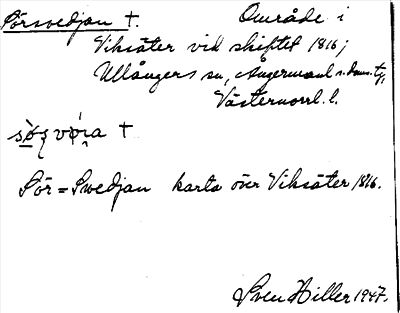 Sörsvedjan †. Område i
Viksäter vid skiftet 1816;
Ullångers sn, Ångermanl. s. doms. tg,
Västernorrl. l.
Sör=Swedjan karta över Viksäter 1816.
Sven Hiller 1947.